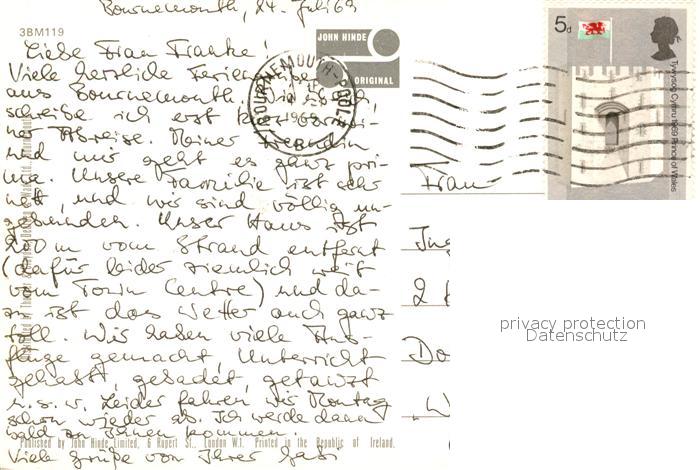 Bournemouth, 24. Juli 69
3BM119
JOHN HINDE
ORIGINAL
5d
Tywysog Cymru 1969 Prince of Wales
BOURNEMOUTH-POOLE
1969
Liebe Frau Franke!
Viele herzliche Feriengrüße
aus Bournemouth.
schreibe ich erst kurz vor mei-
ner Abreise. Meiner Freundin
und mir geht es ganz pri-
ma. Unsere Familie ist sehr
nett, und wir sind völlig un-
gebunden. Unser Haus ist
200 m vom Strand entfernt
(dafür leider ziemlich weit
vom Town Centre) und da-
zu ist das Wetter auch ganz
toll. Wir haben viele Aus-
flüge gemacht, Unterricht
gehabt, gebadet, getanzt
u.s.w. Leider fahren wir Montag
schon wieder ab. Ich werde dann
bald zu Ihnen kommen.
Published by John Hinde Limited, 6 Rupert St., London W.1. Printed in the Republic of Ireland.
Viele Grüße von Ihrer Gabi
Frau
Ing
2
Do
"W
privacy protection
Datenschutz